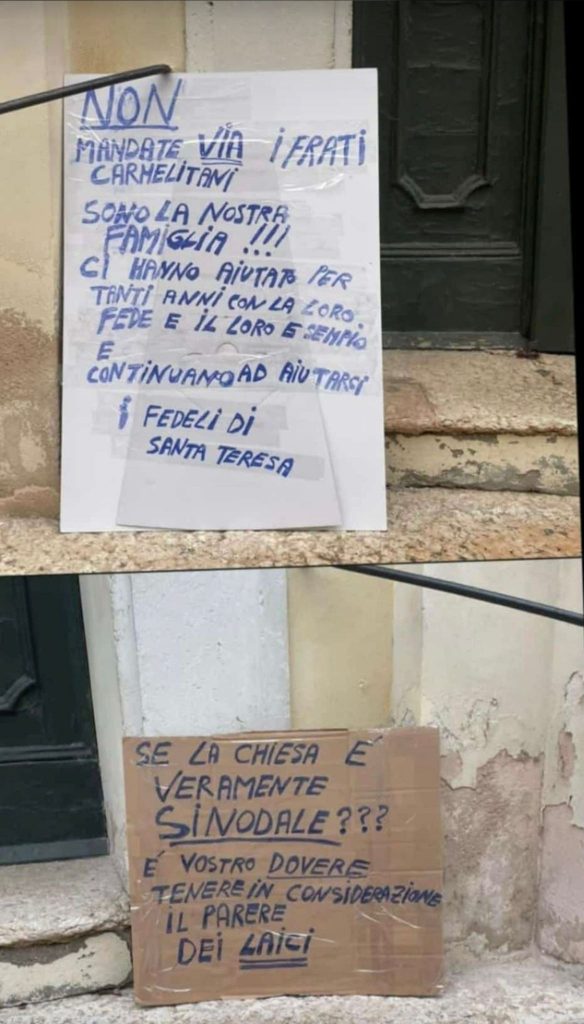 NON
MANDATE VIA I FRATI
CARMELITANI
SONO LA NOSTRA
FAMIGLIA !!!
CI HANNO AIUTATO PER
TANTI ANNI CON LA LORO
FEDE E IL LORO ESEMPIO
E
CONTINUANO AD AIUTARCI
I FEDELI DI
SANTA TERESA
SE LA CHIESA E'
VERAMENTE
SINODALE???
E' VOSTRO DOVERE
TENERE IN CONSIDERAZIONE
IL PARERE
DEI LAICI